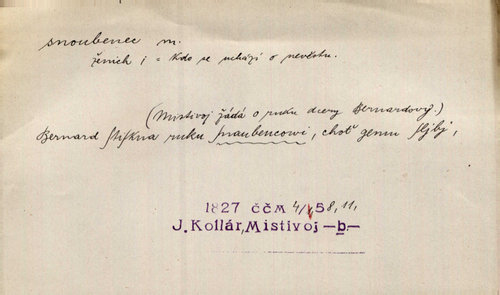 snoubenec m.
ženich i = kdo se uchází o nevěstu.
(Mistivoj žádá o ruku dcery Bernardovy.)
Bernard stiskna ruku snaubencowi, chotˇ genu sljbj,
1827 ČČM 4/1, 58, 11,
J. Kollár, Mistivoj —b—